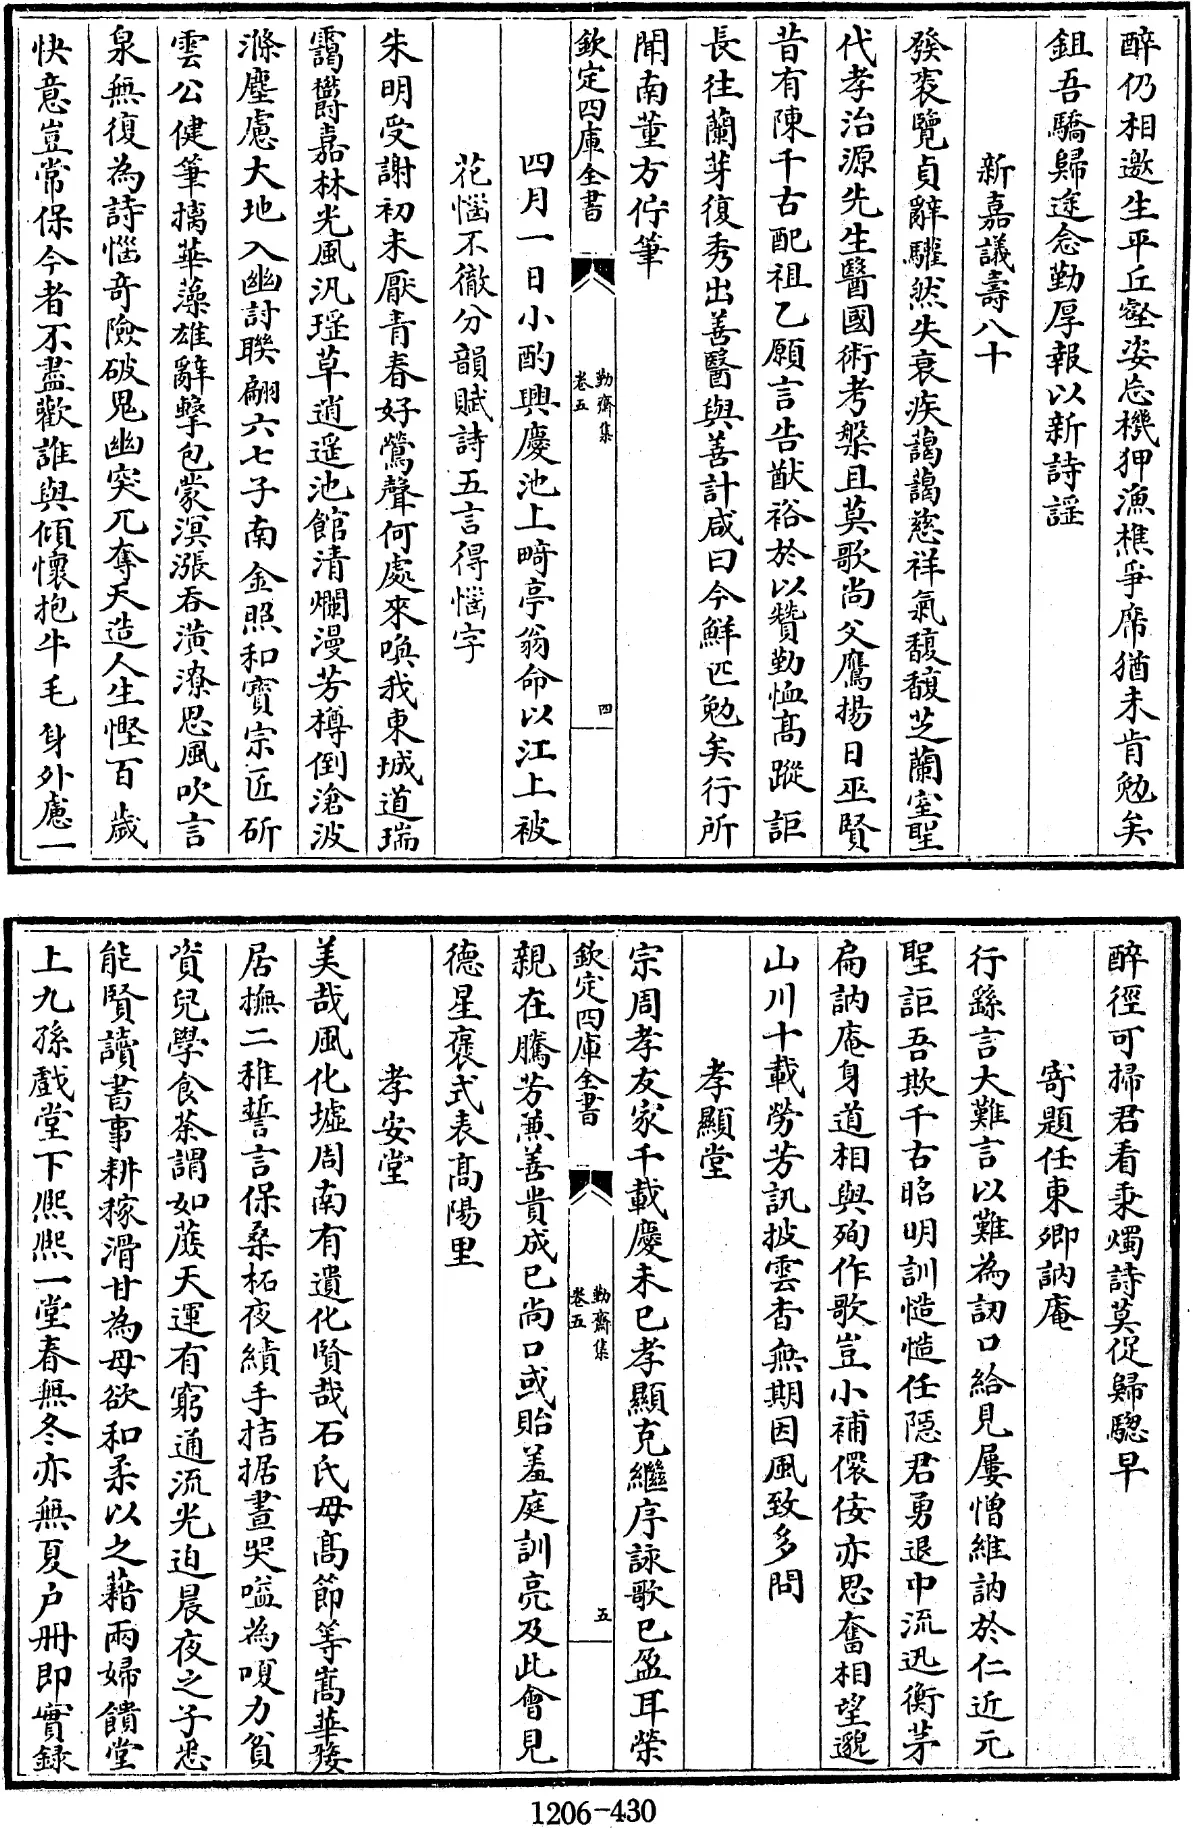 醉仍相邀生平丘壑姿忘機狎漁樵爭席猶未肯勉矣
鉏吾驕歸途念勤厚報以新詩謡
新嘉議壽八十
發袠覽貞辭驩然失衰疾藹藹慈祥氣馥馥芝蘭室聖
代孝治源先生醫國術考槃且莫歌尚父鷹揚日巫賢
昔有陳千古配祖乙願言告猷裕於以贊勤恤髙蹤詎
長往蘭芽復秀出善醫與善計咸曰今鮮匹勉矣行所
聞南董方佇筆
欽定四庫全書
勤齋集
卷五
四
四月一日小酌興慶池上畸亭翁命以江上被
花惱不徹分韻賦詩五言得惱字
朱明受謝初未厭青春好鶯聲何處來喚我東城道瑞
靄欝嘉林光風汎瑶草逍遥池館清爛漫芳樽倒滄波
滌塵慮大地入幽討聯翩六七子南金照和寳宗匠斫
雲公健筆摛華藻雄辭孽包蒙溟漲吞潢潦思風吹言
泉無復為詩惱奇險破鬼幽突兀奪天造人生慳百歲
快意豈常保今者不盡歡誰與傾懷抱牛毛身外慮一
醉徑可掃君看秉燭詩莫促歸驄早
寄題任東卿訥庵
行繇言大難言以難為訒口給見屢憎維訥於仁近元
聖詎吾欺千古昭明訓慥慥任隱君勇退巾流迅衡茅
扁訥庵身道相與殉作歌豈小補儇佞亦思奮相望邈
山川十載勞芳訊披雲杳無期因風致多問
孝顯堂
宗周孝友家千載慶未已孝顯克繼序詠歌已盈耳榮
欽定四庫全書
勤齋集
卷五
五
親在騰芳兼善貴成已尚口或貽羞庭訓亮及此會見
德星褒式表髙陽里
孝安堂
美哉風化墟周南有遺化賢哉石氏母髙節等嵩華嫠
居撫二稚誓言保桑柘夜績手拮据晝哭嗌為嗄力貧
資兒學食荼謂如蔗天運有窮通流光迫晨夜之子悲
能賢讀書事耕稼滑甘為母欲和柔以之藉兩婦饋堂
上九孫戲堂下熈熈一堂春無冬亦無夏户冊即實録
1206-430